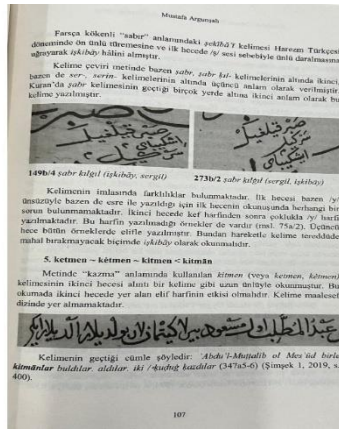 Mustafa Argunşah
Farsça kökenli "sabır" anlamındaki şekîbâ'î kelimesi Harezm Türkçesi
döneminde ön ünlü türemesine ve ilk hecede /ş/ sesi sebebiyle ünlü daralmasına
uğrayarak işkibāy hâlini almıştır.
Kelime çeviri metinde bazen ṣabr, ṣabr kıl- kelimelerinin altında ikinci,
bazen de ser-, serin- kelimelerinin altında üçüncü anlam olarak verilmiştir.
Kuran'da ṣabr kelimesinin geçtiği birçok yerde altına ikinci anlam olarak bu
kelime yazılmıştır.
149b/4 ṣabr kılġıl (işkibāy, sergil)
273b/2 ṣabr kılġıl (sergil, işkibāy)
Kelimenin imlasında farklılıklar bulunmaktadır. İlk hecesi bazen /y/
ünsüzüyle bazen de esre ile yazıldığı için ilk hecenin okunuşunda herhangi bir
sorun bulunmamaktadır. İkinci hecede kef harfinden sonra çoklukla /y/ harfi
yazılmaktadır. Bu harfin yazılmadığı örnekler de vardır (msl. 75a/2). Üçüncü
hece bütün örneklerde elifle yazılmıştır. Bundan hareketle kelime tereddüde
mahal bırakmayacak biçimde işkibāy olarak okunmalıdır.
5. ketmen ~ kétmen ~ kitmen < kitmān
Metinde "kazma" anlamında kullanılan kitmen (veya ketmen, kétmen)
kelimesinin ikinci hecesi alıntı bir kelime gibi uzun ünlüyle okunmuştur. Bu
okumada ikinci hecede yer alan elif harfinin etkisi olmalıdır. Kelime maalesef
dizinde yer almamaktadır.
Kelimenin geçtiği cümle şöyledir: 'Abdu'l-Muṭṭalib ol Mes'ūd birle
kitmānlar buldılar, aldılar, iki kuduġ kazdılar (347a5-6) (Şimşek 1, 2019, s.
400).
107